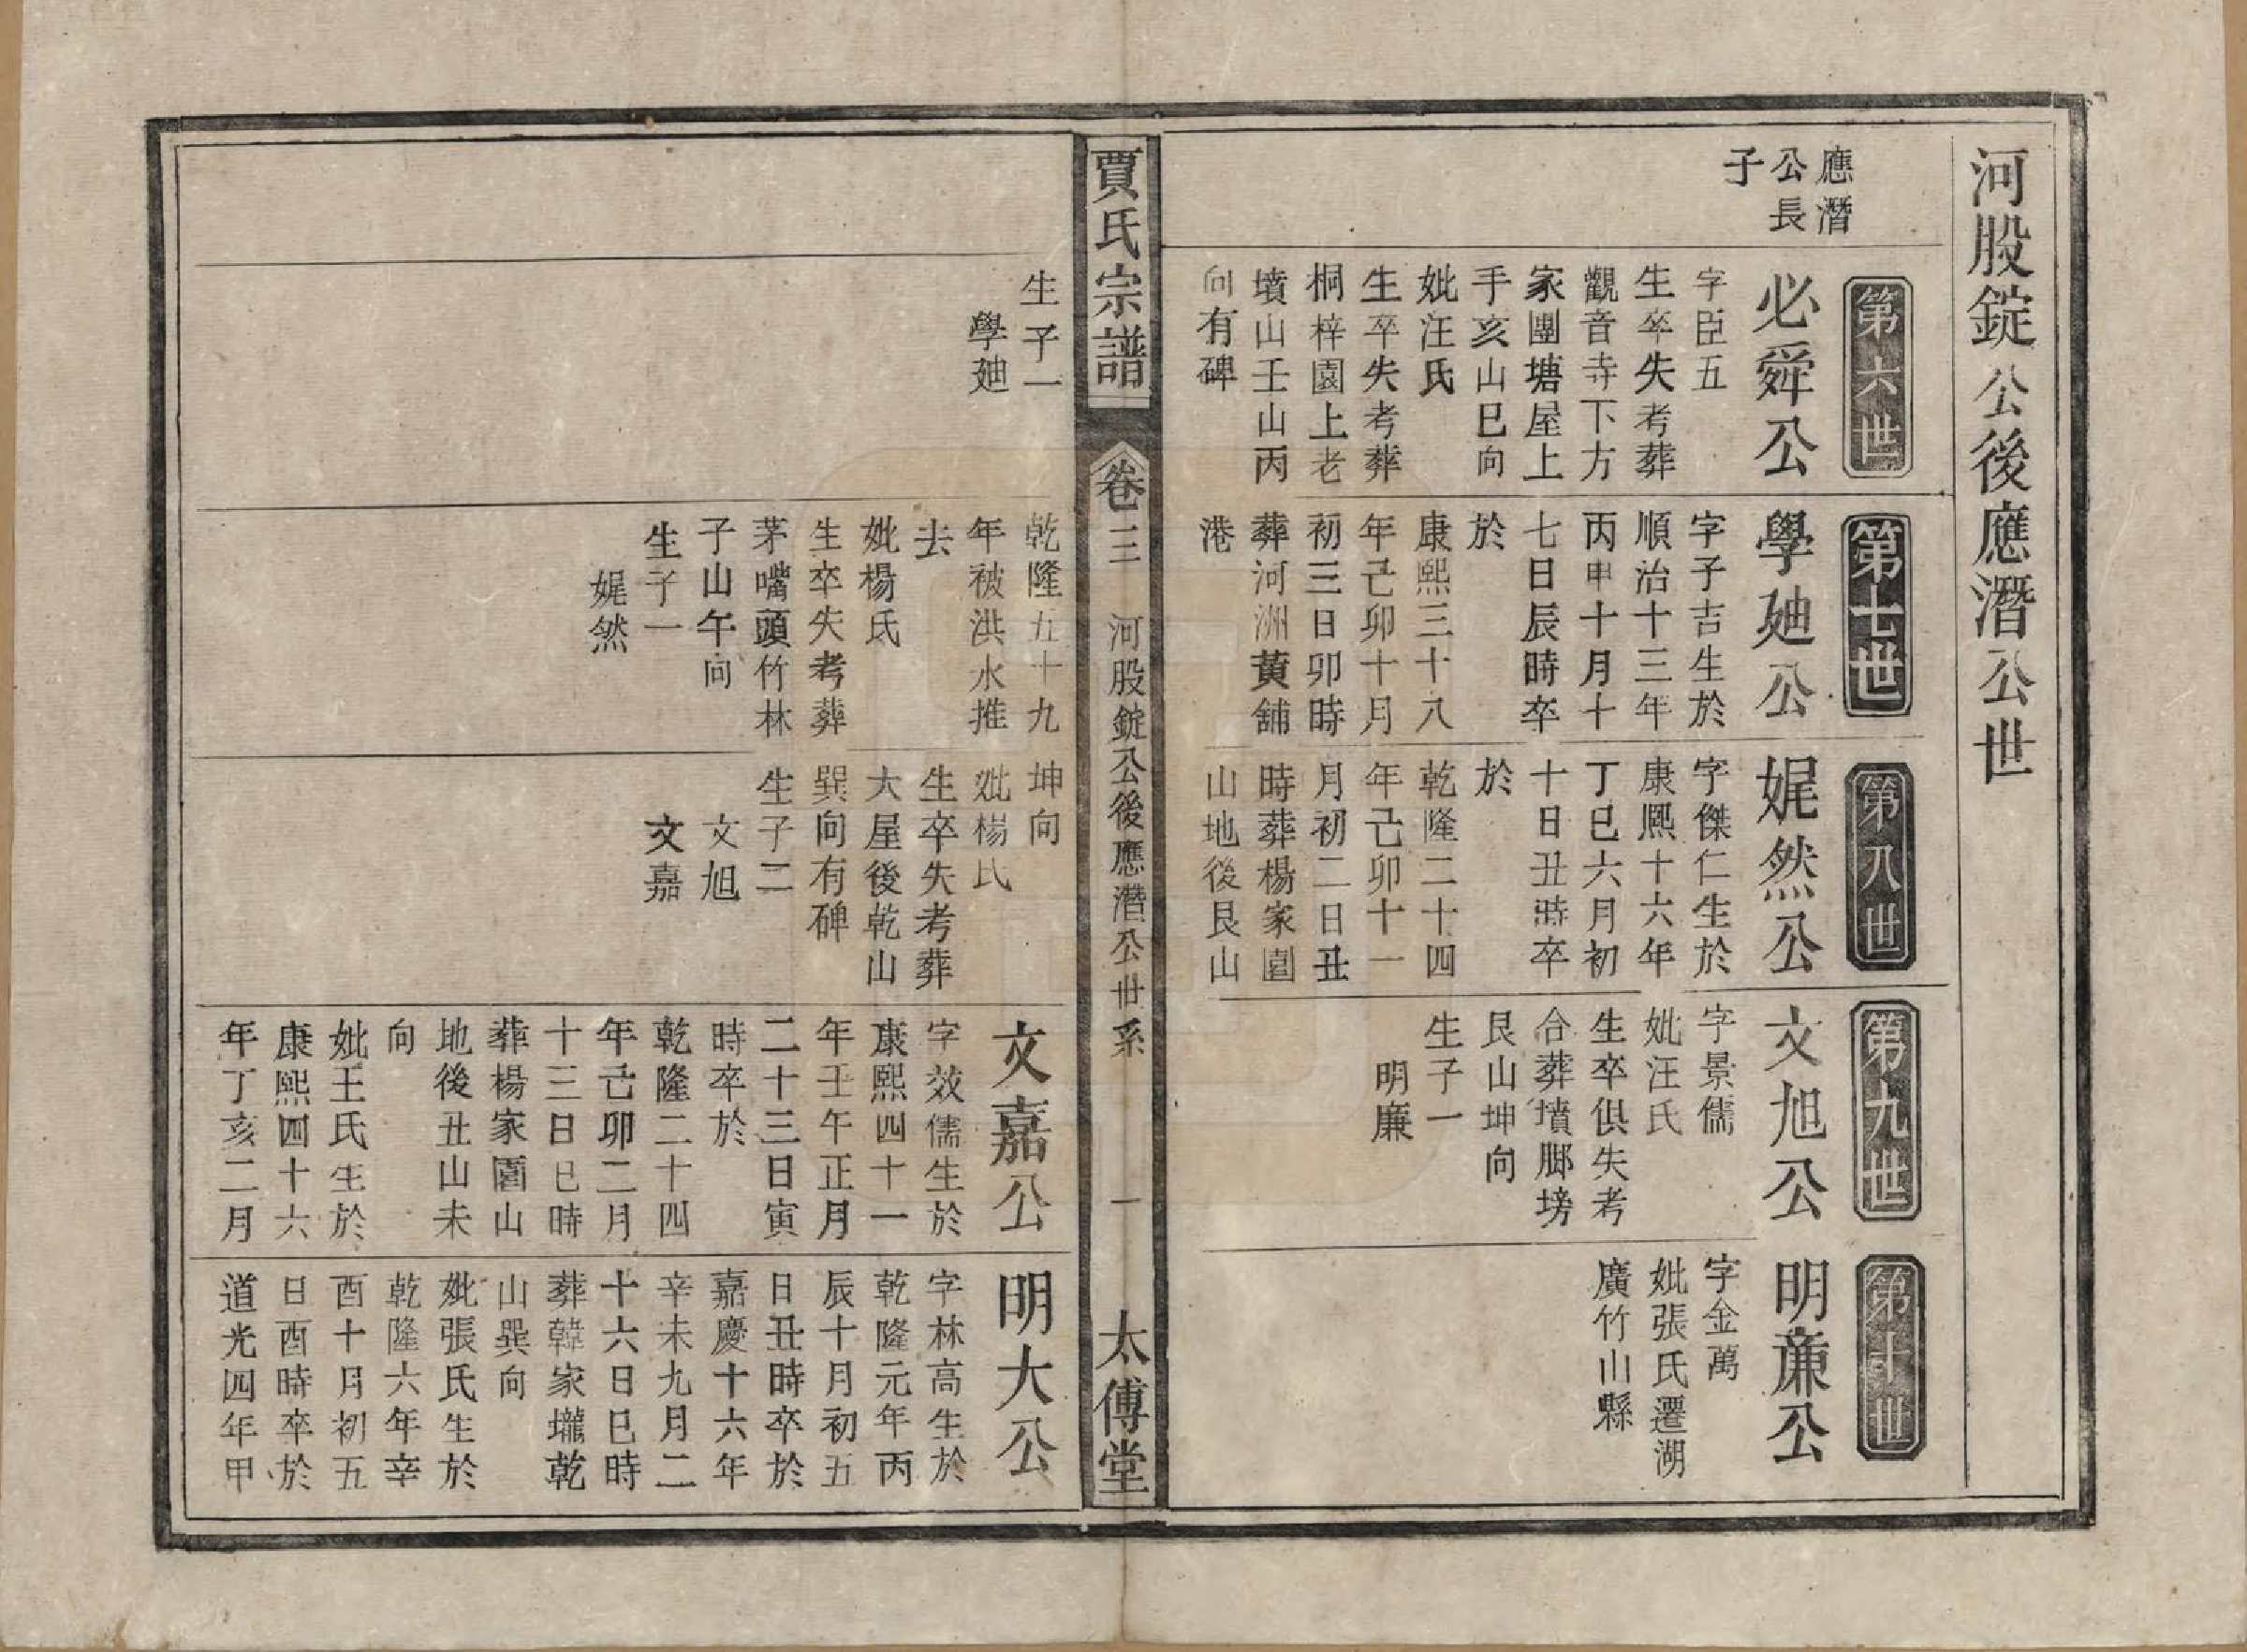 河股錠公後應潛公世
應潛
公長
子
第六世
必舜公
字臣五
生卒失考葬
觀音寺下方
家團塘屋上
手亥山巳向
妣汪氏
生卒失考葬
桐梓園上老
墳山壬山丙
向有碑
第七世
學廸公
字子吉生於
順治十三年
丙申十月十
七日辰時卒
於
康熙三十八
年己卯十月
初三日卯時
葬河洲黃舖
港
第八世
娓然公
字傑仁生於
康熙十六年
丁巳六月初
十日丑時卒
於
乾隆二十四
年己卯十一
月初二日丑
時葬楊家園
山地後艮山
第九世
文旭公
字景儒
妣汪氏
生卒俱失考
合葬墳脚塝
艮山坤向
生子一
明廉
第十世
明廉公
字金萬
妣張氏遷湖
廣竹山縣
賈氏宗譜
卷三
河股錠公後應潛公世系
一
太傅堂
生子一
學廸
乾隆五十九
年被洪水推
去
妣楊氏
生卒失考葬
茅嘴頭竹林
子山午向
生子一
娓然
坤向
妣楊氏
生卒失考葬
大屋後乾山
巽向有碑
生子二
文旭
文嘉
文嘉公
字效儒生於
康熙四十一
年壬午正月
二十三日寅
時卒於
乾隆二十四
年己卯二月
十三日巳時
葬楊家園山
地後丑山未
向
妣王氏生於
康熙四十六
年丁亥二月
明大公
字林高生於
乾隆元年丙
辰十月初五
日丑時卒於
嘉慶十六年
辛未九月二
十六日巳時
葬韓家壠乾
山巽向
妣張氏生於
乾隆六年辛
酉十月初五
日酉時卒於
道光四年甲